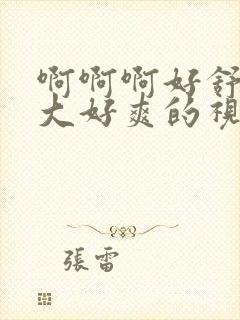 啊啊啊好舒
大好爽的視
張雷